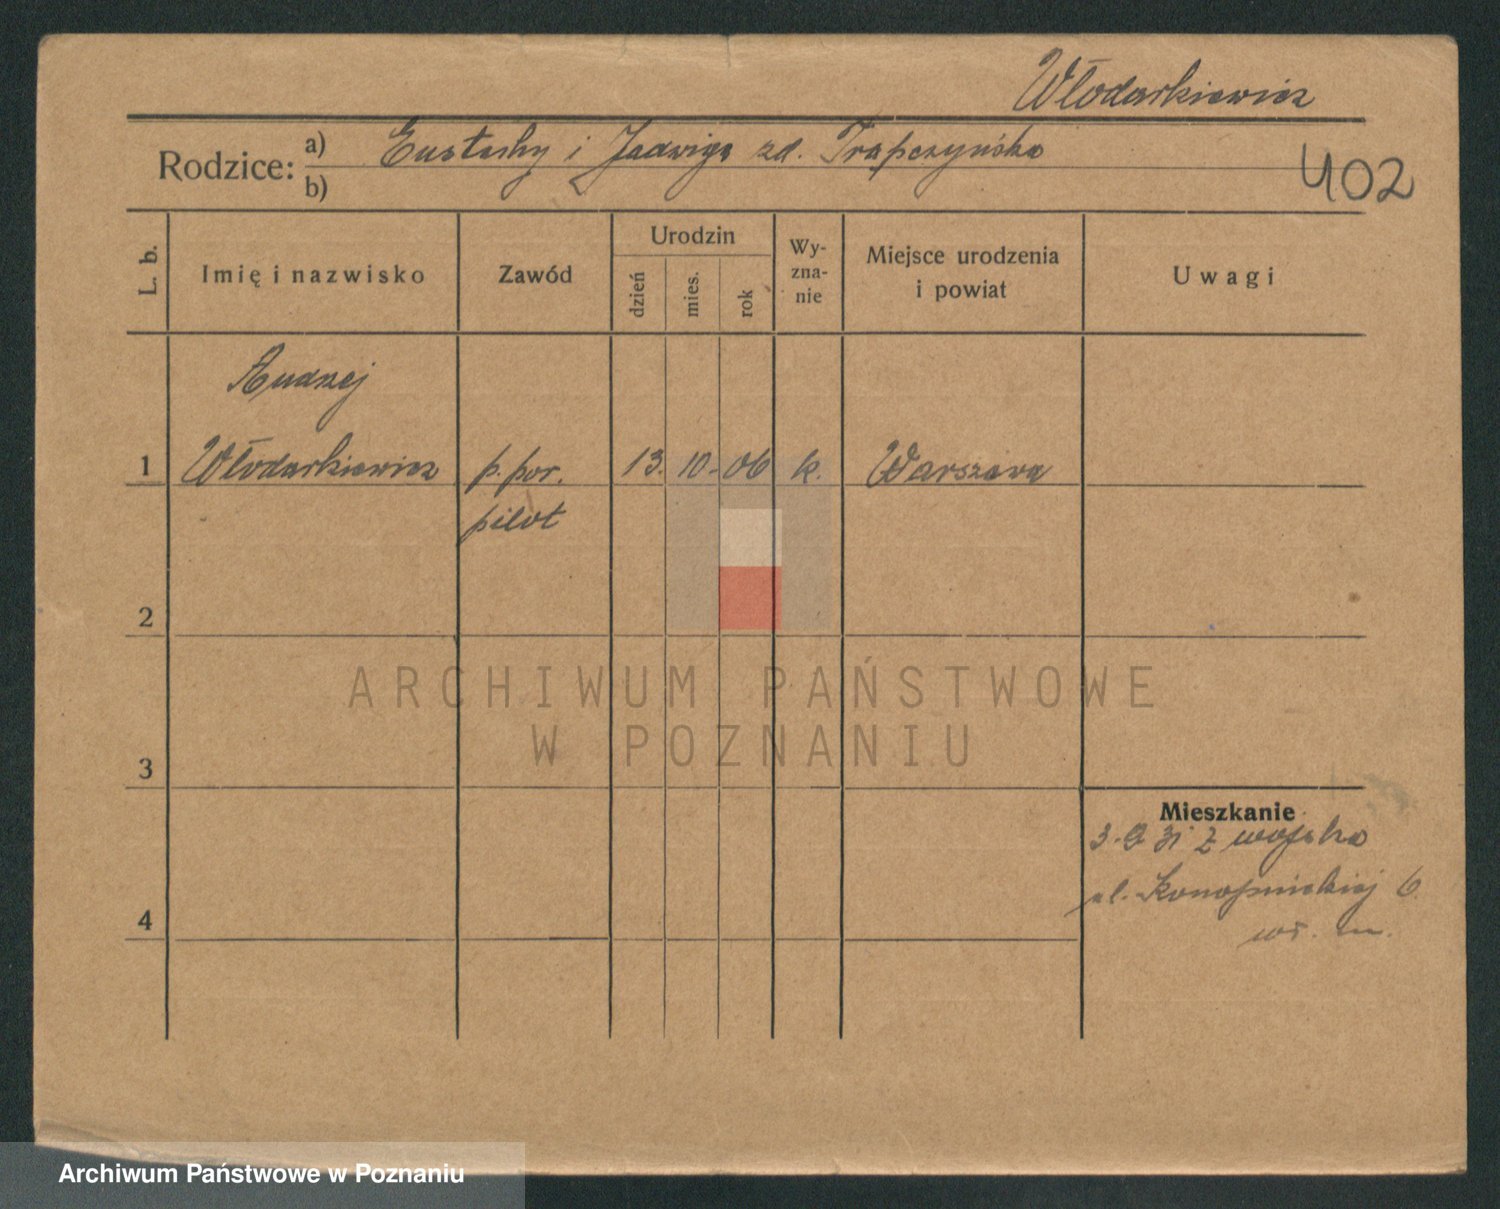 Włodarkiewicz
Rodzice: a) Eustachy i Jadwiga zd. Trapczyńska
b)
402
L. b.
Imię i nazwisko
Zawód
Urodzin
dzień
mies.
rok
Wy-
zna-
nie
Miejsce urodzenia
i powiat
Uwagi
Andrzej
1 Włodarkiewicz p. por. 13. 10. 06 k. Warszawa
pilot
2
3
4
Mieszkanie
3.9 31 z wojska
ul. Konopnickiej 6
wł. m.
ARCHIWUM PAŃSTWOWE
W POZNANIU
Archiwum Państwowe w Poznaniu